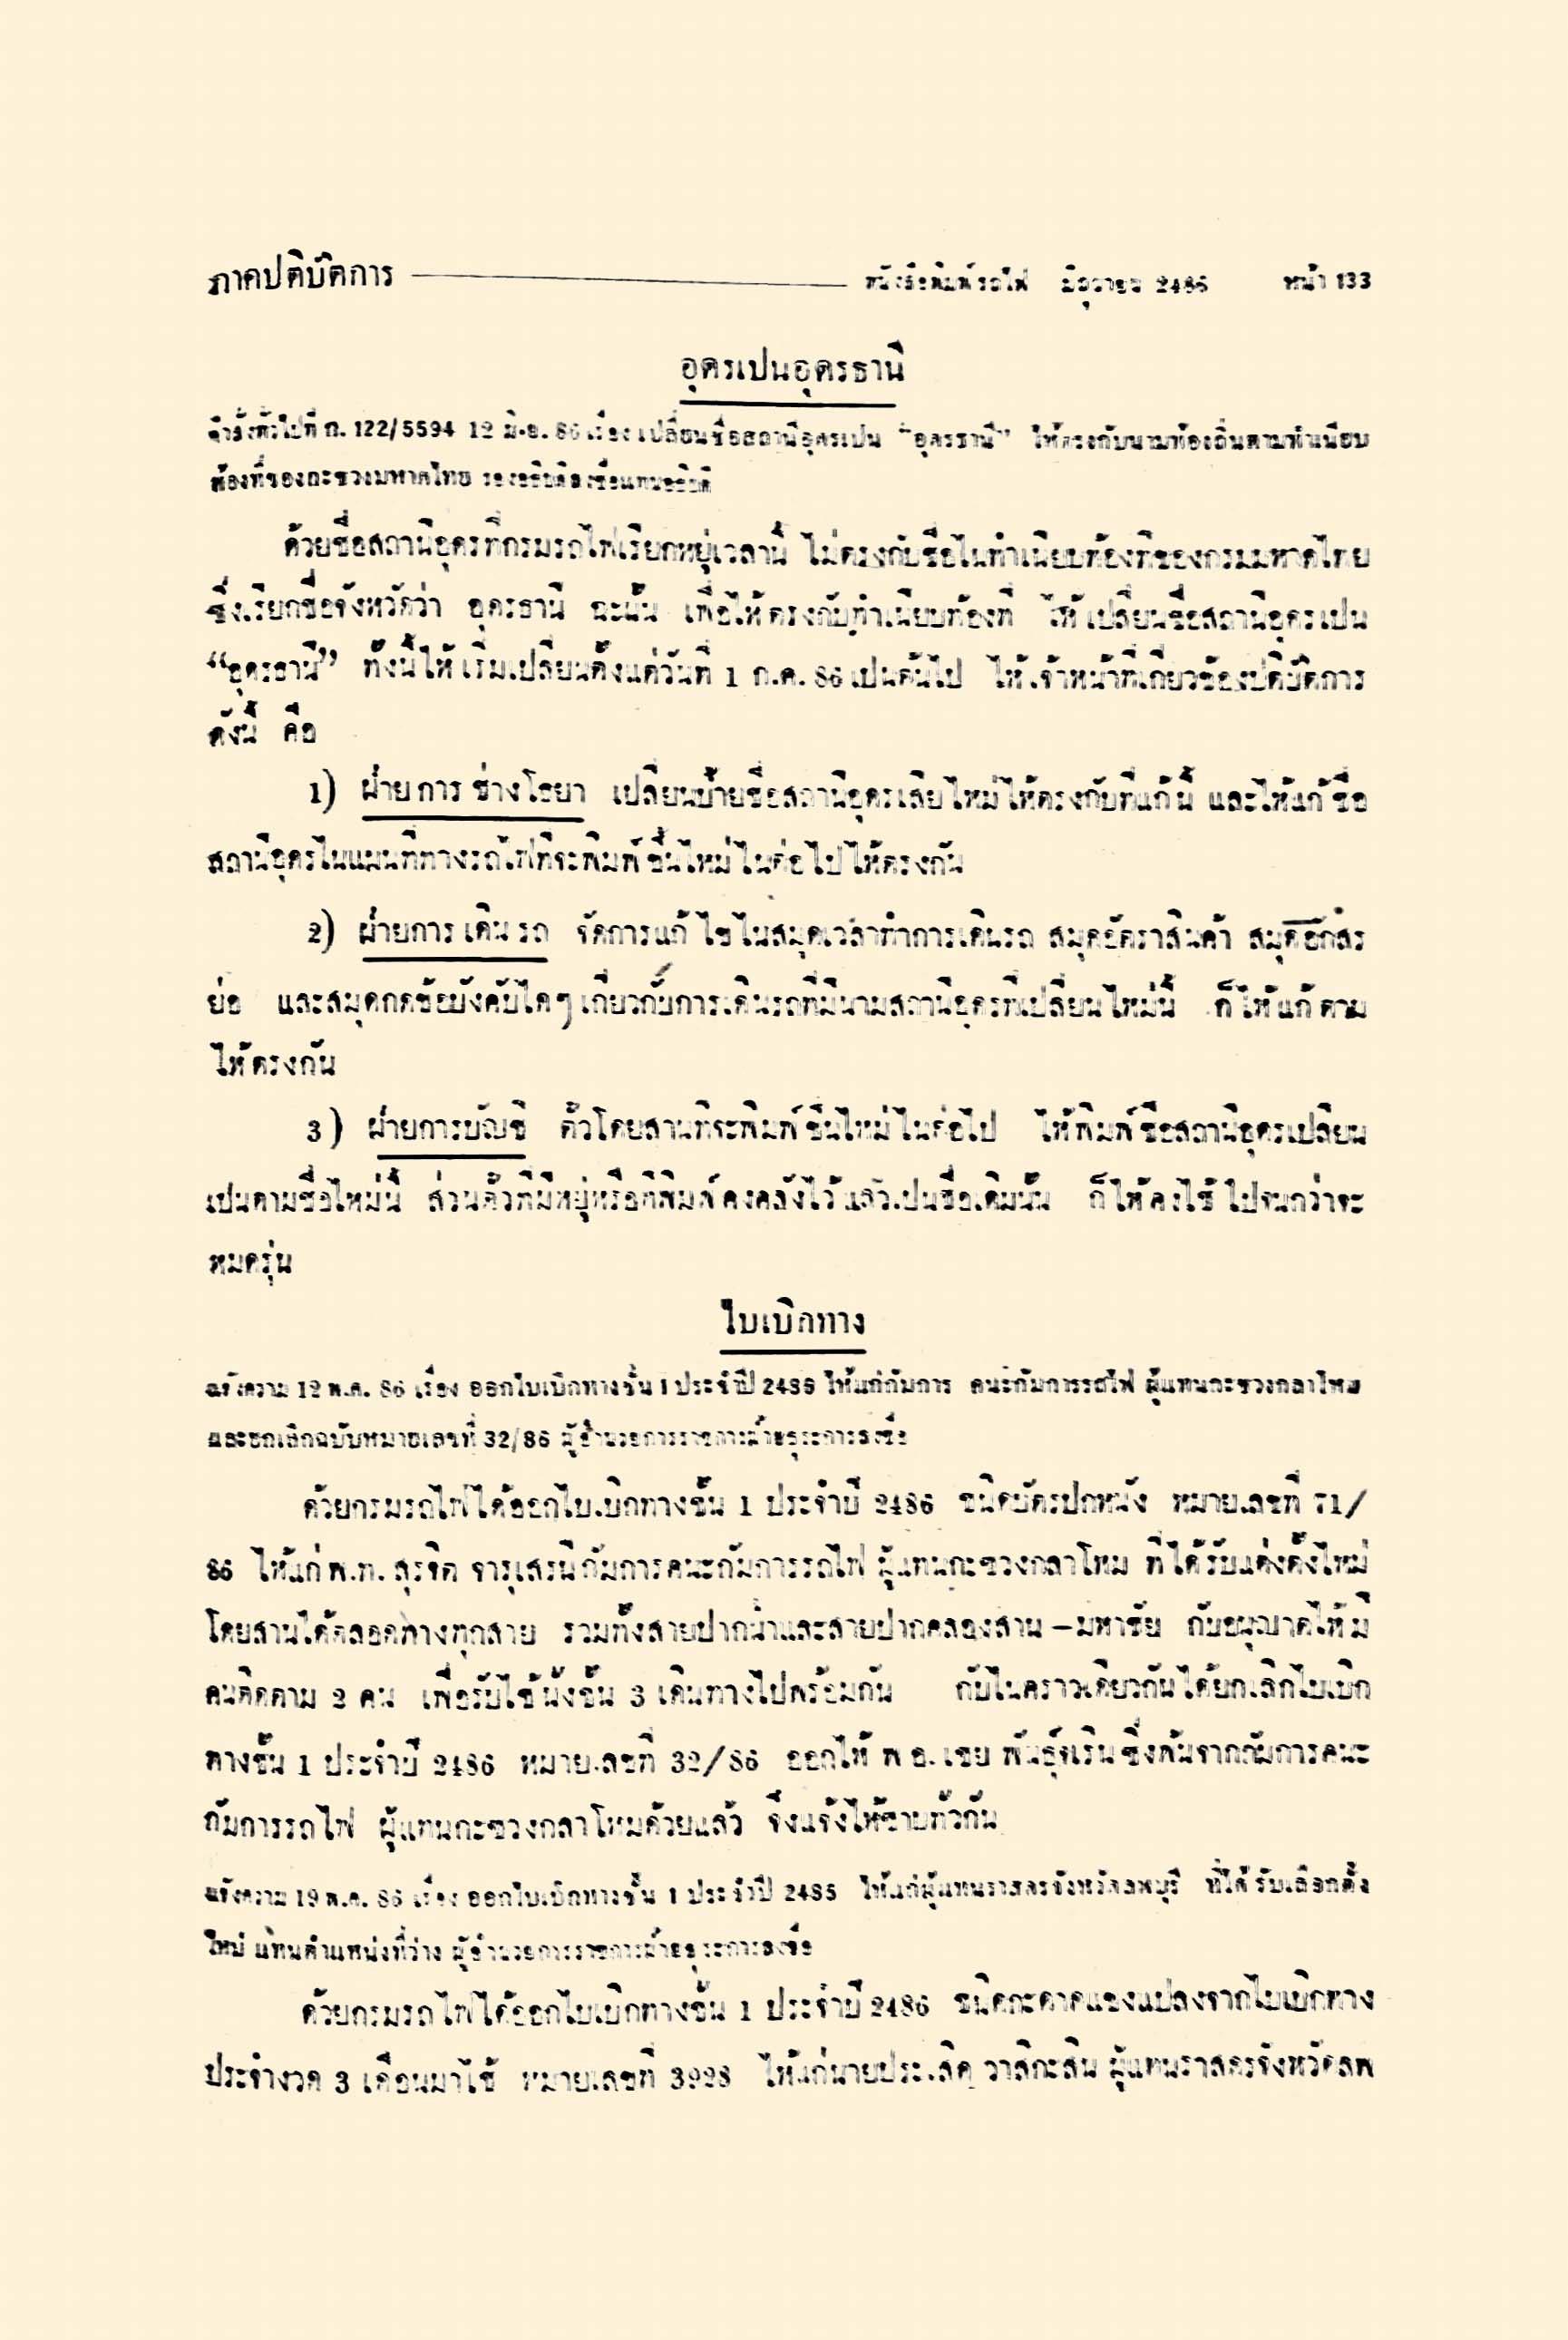 ภาคปติบัติการ หนังสือพิมพ์รถไฟ มิถุนายน 2486 หน้า 133
อุดรเปนอุดรธานี
คำสั่งทั่วไปที่ ก. 122/5594 12 มิ.ย. 86 เรื่อง เปลี่ยนชื่อสถานีอุดรเปน “อุดรธานี” ให้ตรงกับนามท้องถิ่นตามทำเนียบ
ท้องที่ของกะซวงมหาดไทย รองอธิบดีลงชื่อแทนอธิบดี
ด้วยชื่อสถานีอุดรที่กรมรถไฟเรียกหยู่เวลานี้ ไม่ตรงกับชื่อไนทำเนียบท้องที่ของกรมมหาดไทย
ซึ่งเรียกชื่อจังหวัดว่า อุดรธานี ฉะนั้น เพื่อไห้ตรงกับทำเนียบท้องที่ ไห้เปลี่ยนชื่อสถานีอุดรเปน
“อุดรธานี” ทั้งนี้ไห้เริ่มเปลี่ยนตั้งแต่วันที่ 1 ก.ค. 86 เปนต้นไป ไห้เจ้าหน้าที่เกี่ยวข้องปติบัติการ
ดังนี้ คือ
1) ฝ่ายการช่างโยธา เปลี่ยนป้ายชื่อสถานีอุดรเสียไหม่ไห้ตรงกับที่แก้นี้ และไห้แก้ชื่อ
สถานีอุดรไนแผนที่ทางรถไฟที่จะพิมพ์ขึ้นไหม่ไนต่อไปไห้ตรงกัน
2) ฝ่ายการเดินรถ จัดการแก้ไขไนสมุดเวลาทำการเดินรถ สมุดอัตราสินค้า สมุดอักสร
ย่อ และสมุดกดข้อบังคับไดๆ เกี่ยวกับการเดินรถที่มีนามสถานีอุดรที่เปลี่ยนไหม่นี้ ก็ไห้แก้ตาม
ไห้ตรงกัน
3) ฝ่ายการบัญชี ตั๋วโดยสานที่จะพิมพ์ขึ้นไหม่ไนต่อไป ไห้พิมพ์ชื่อสถานีอุดรเปลี่ยน
เปนตามชื่อไหม่นี้ ส่วนตั๋วที่มีหยู่หรือที่พิมพ์คงคลังไว้แล้วเปนชื่อเดิมนั้น ก็ไห้คงไช้ไปจนกว่าจะ
หมดรุ่น
ใบเบิกทาง
แจ้งความ 12 พ.ค. 86 เรื่อง ออกใบเบิกทางชั้น 1 ประจำปี 2486 ให้แก่กัมการ คนะกัมการรถไฟ ผู้แทนกะซวงกลาโหม
และยกเลิกฉบับหมายเลขที่ 32/86 ผู้อำนวยการราชการฝ่ายธุระการลงชื่อ
ด้วยกรมรถไฟได้ออกไบเบิกทางชั้น 1 ประจำปี 2486 ชนิดบัตรปกหนัง หมายเลขที่ 71/
86 ไห้แก่ พ.ท. สุรจิต จารุเสรนี กัมการคนะกัมการรถไฟ ผู้แทนกะซวงกลาโหม ที่ได้รับแต่งตั้งไหม่
โดยสานได้ตลอดทางทุกสาย รวมทั้งสายปากน้ำและสายปากคลองสาน—มหาชัย กับอนุญาตไห้มี
คนติดตาม 2 คน เพื่อรับไช้นั่งชั้น 3 เดินทางไปพร้อมกัน กับไนคราวเดียวกันได้ยกเลิกไบเบิก
ทางชั้น 1 ประจำปี 2486 หมายเลขที่ 32/86 ออกไห้ พ อ. เชย พันธุ์จเริน ซึ่งพ้นจากกัมการคนะ
กัมการรถไฟ ผู้แทนกะซวงกลาโหมด้วยแล้ว จึงแจ้งไห้ซาบทั่วกัน
แจ้งความ 19 พ.ค. 86 เรื่อง ออกใบเบิกทางชั้น 1 ประจำปี 2486 ให้แก่ผู้แทนราสดรจังหวัดลพบุรี ที่ได้รับเลือกตั้ง
ใหม่ แทนตำแหน่งที่ว่าง ผู้อำนวยการราชการฝ่ายธุระการลงชื่อ
ด้วยกรมรถไฟได้ออกไบเบิกทางชั้น 1 ประจำปี 2486 ชนิดกะดาดแขงแปลงจากไบเบิกทาง
ประจำงวด 3 เดือนมาไช้ หมายเลขที่ 3928 ไห้แก่นายประเสิด วาสิกะสิน ผู้แทนราสดรจังหวัดลพ